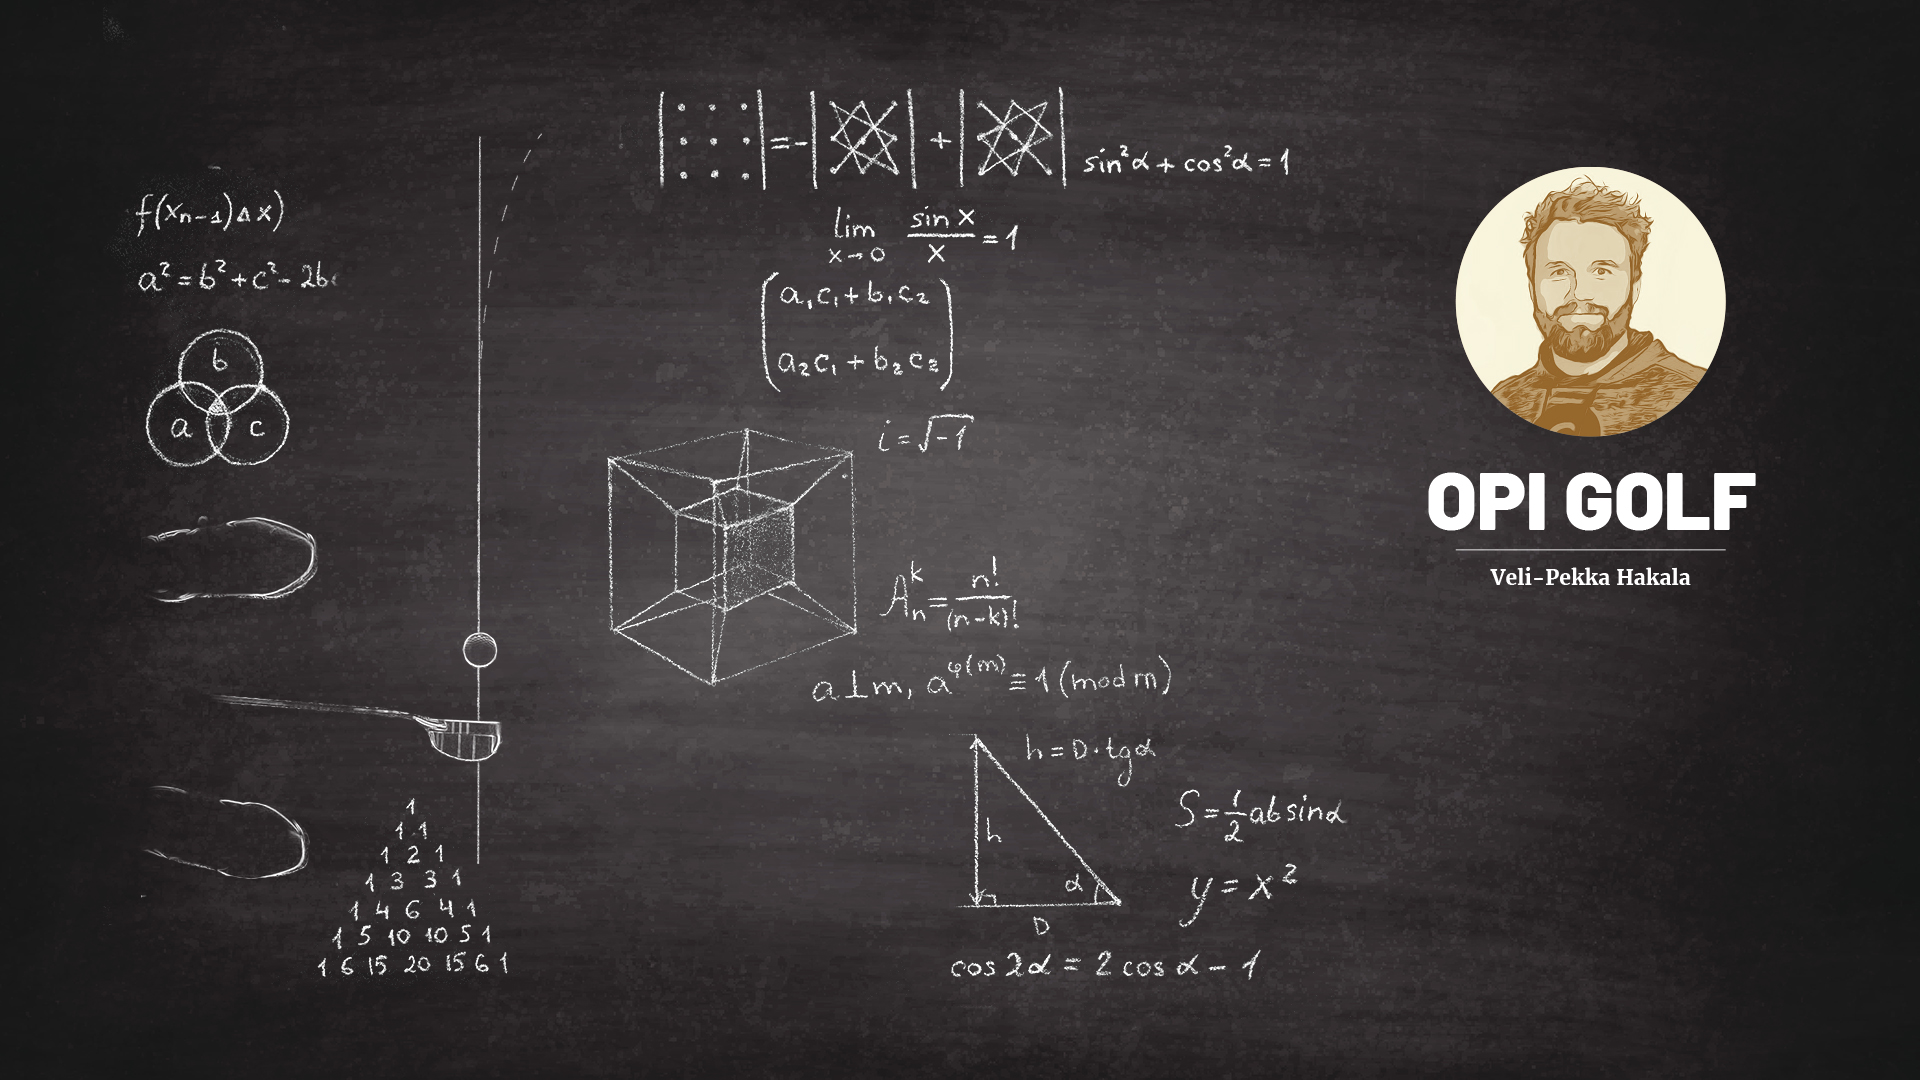 f(xₙ₋₁)Δx)
a² = b² + c² - 2b
b
a c
1
1 1
1 2 1
1 3 3 1
1 4 6 4 1
1 5 10 10 5 1
1 6 15 20 15 6 1
= - +
sin²α + cos²α = 1
lim x→0 sin x / x = 1
a₁c₁ + b₁c₂
a₂c₁ + b₂c₂
i = √-1
Aₙᵏ = n! / (n-k)!
a⊥m, a^φ(m) ≡ 1 (mod m)
h = D · tgα
h
α
D
S = 1/2 ab sinα
y = x²
cos 2α = 2 cos α - 1
OPI GOLF
Veli-Pekka Hakala